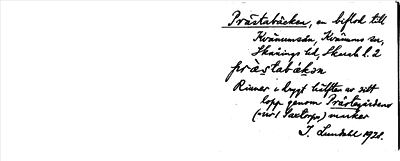 Prästabäcken, en biflod till
Kvännumsån, Kvänums sn,
Skånings hd, Skarab. l. 2
præ̀stabä́kən
Rinner i drygt hälften av sitt
lopp genom Prästegårdens
marker
I. Lundahl 1928.